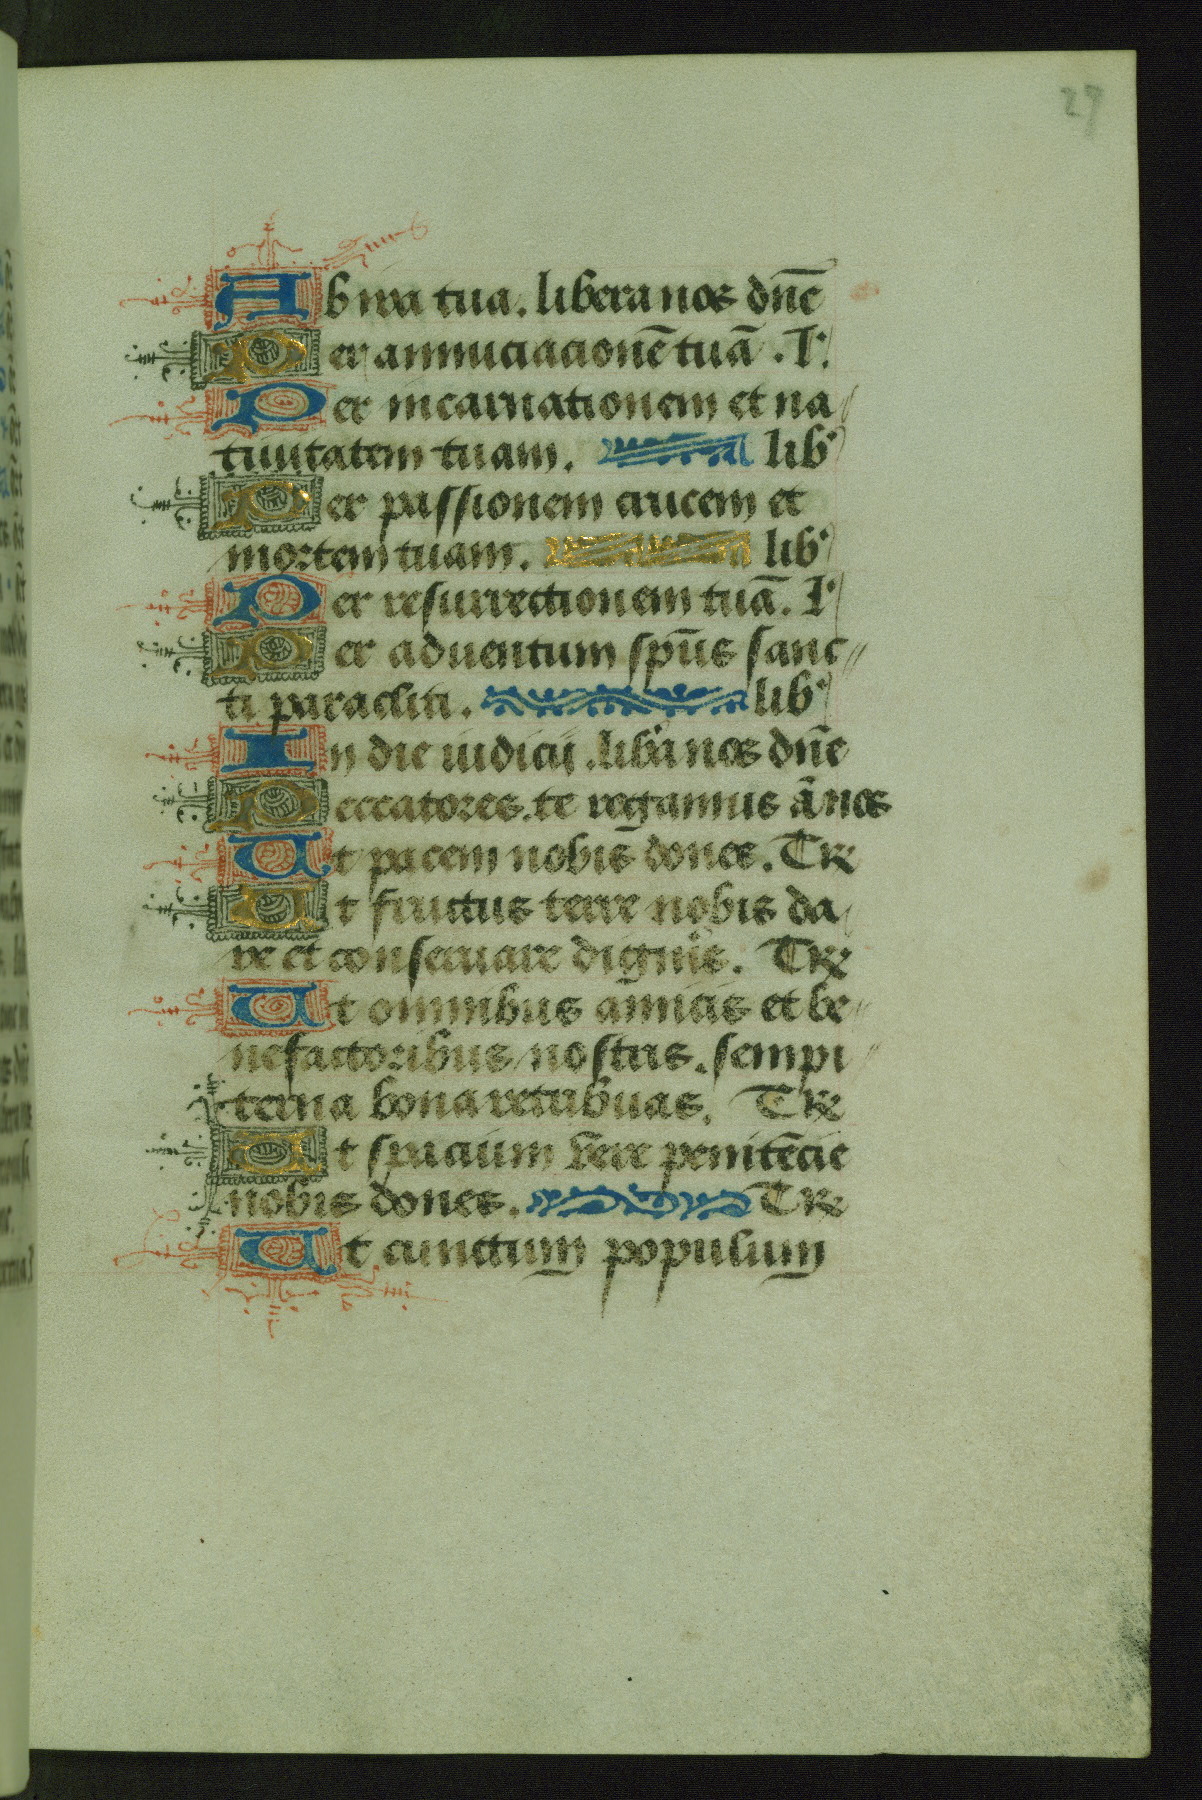 29
Ab ira tua. libera nos dñe
Per annuciacionē tuā. l'
Per incarnationem et na
tiuitatem tuam. lib'
Per passionem crucem et
mortem tuam. lib'
Per resurrectionem tuā. l'
Per aduentum sp̄us sanc
ti paracliti. lib'
In die iudicii. lib'a nos dñe
Peccatores. te rogamus ā nos
Ut pacem nobis dones. Te r
Ut fructus terre nobis da
re et conseruare digneis. Te r
Ut omnibus amicis et be
nefactoribus nostris. sempi
terna bona retribuas. Te r
Ut spacium vere penitēcie
nobis dones. Te r
Ut cunctum populum